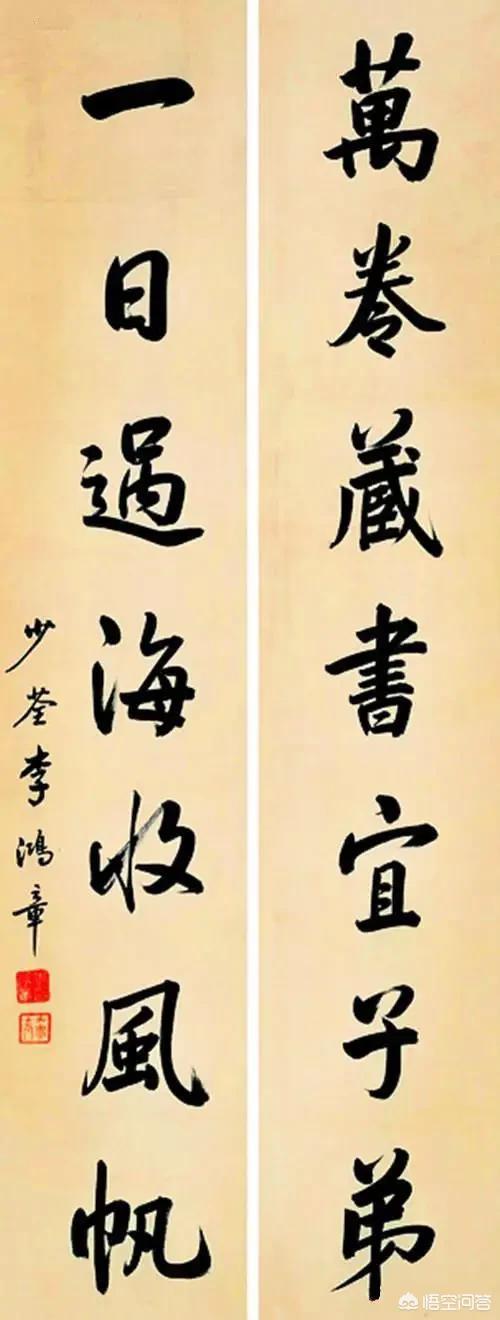 萬卷藏書宜子弟
一日過海收風帆
少荃李鴻章
悟空问答